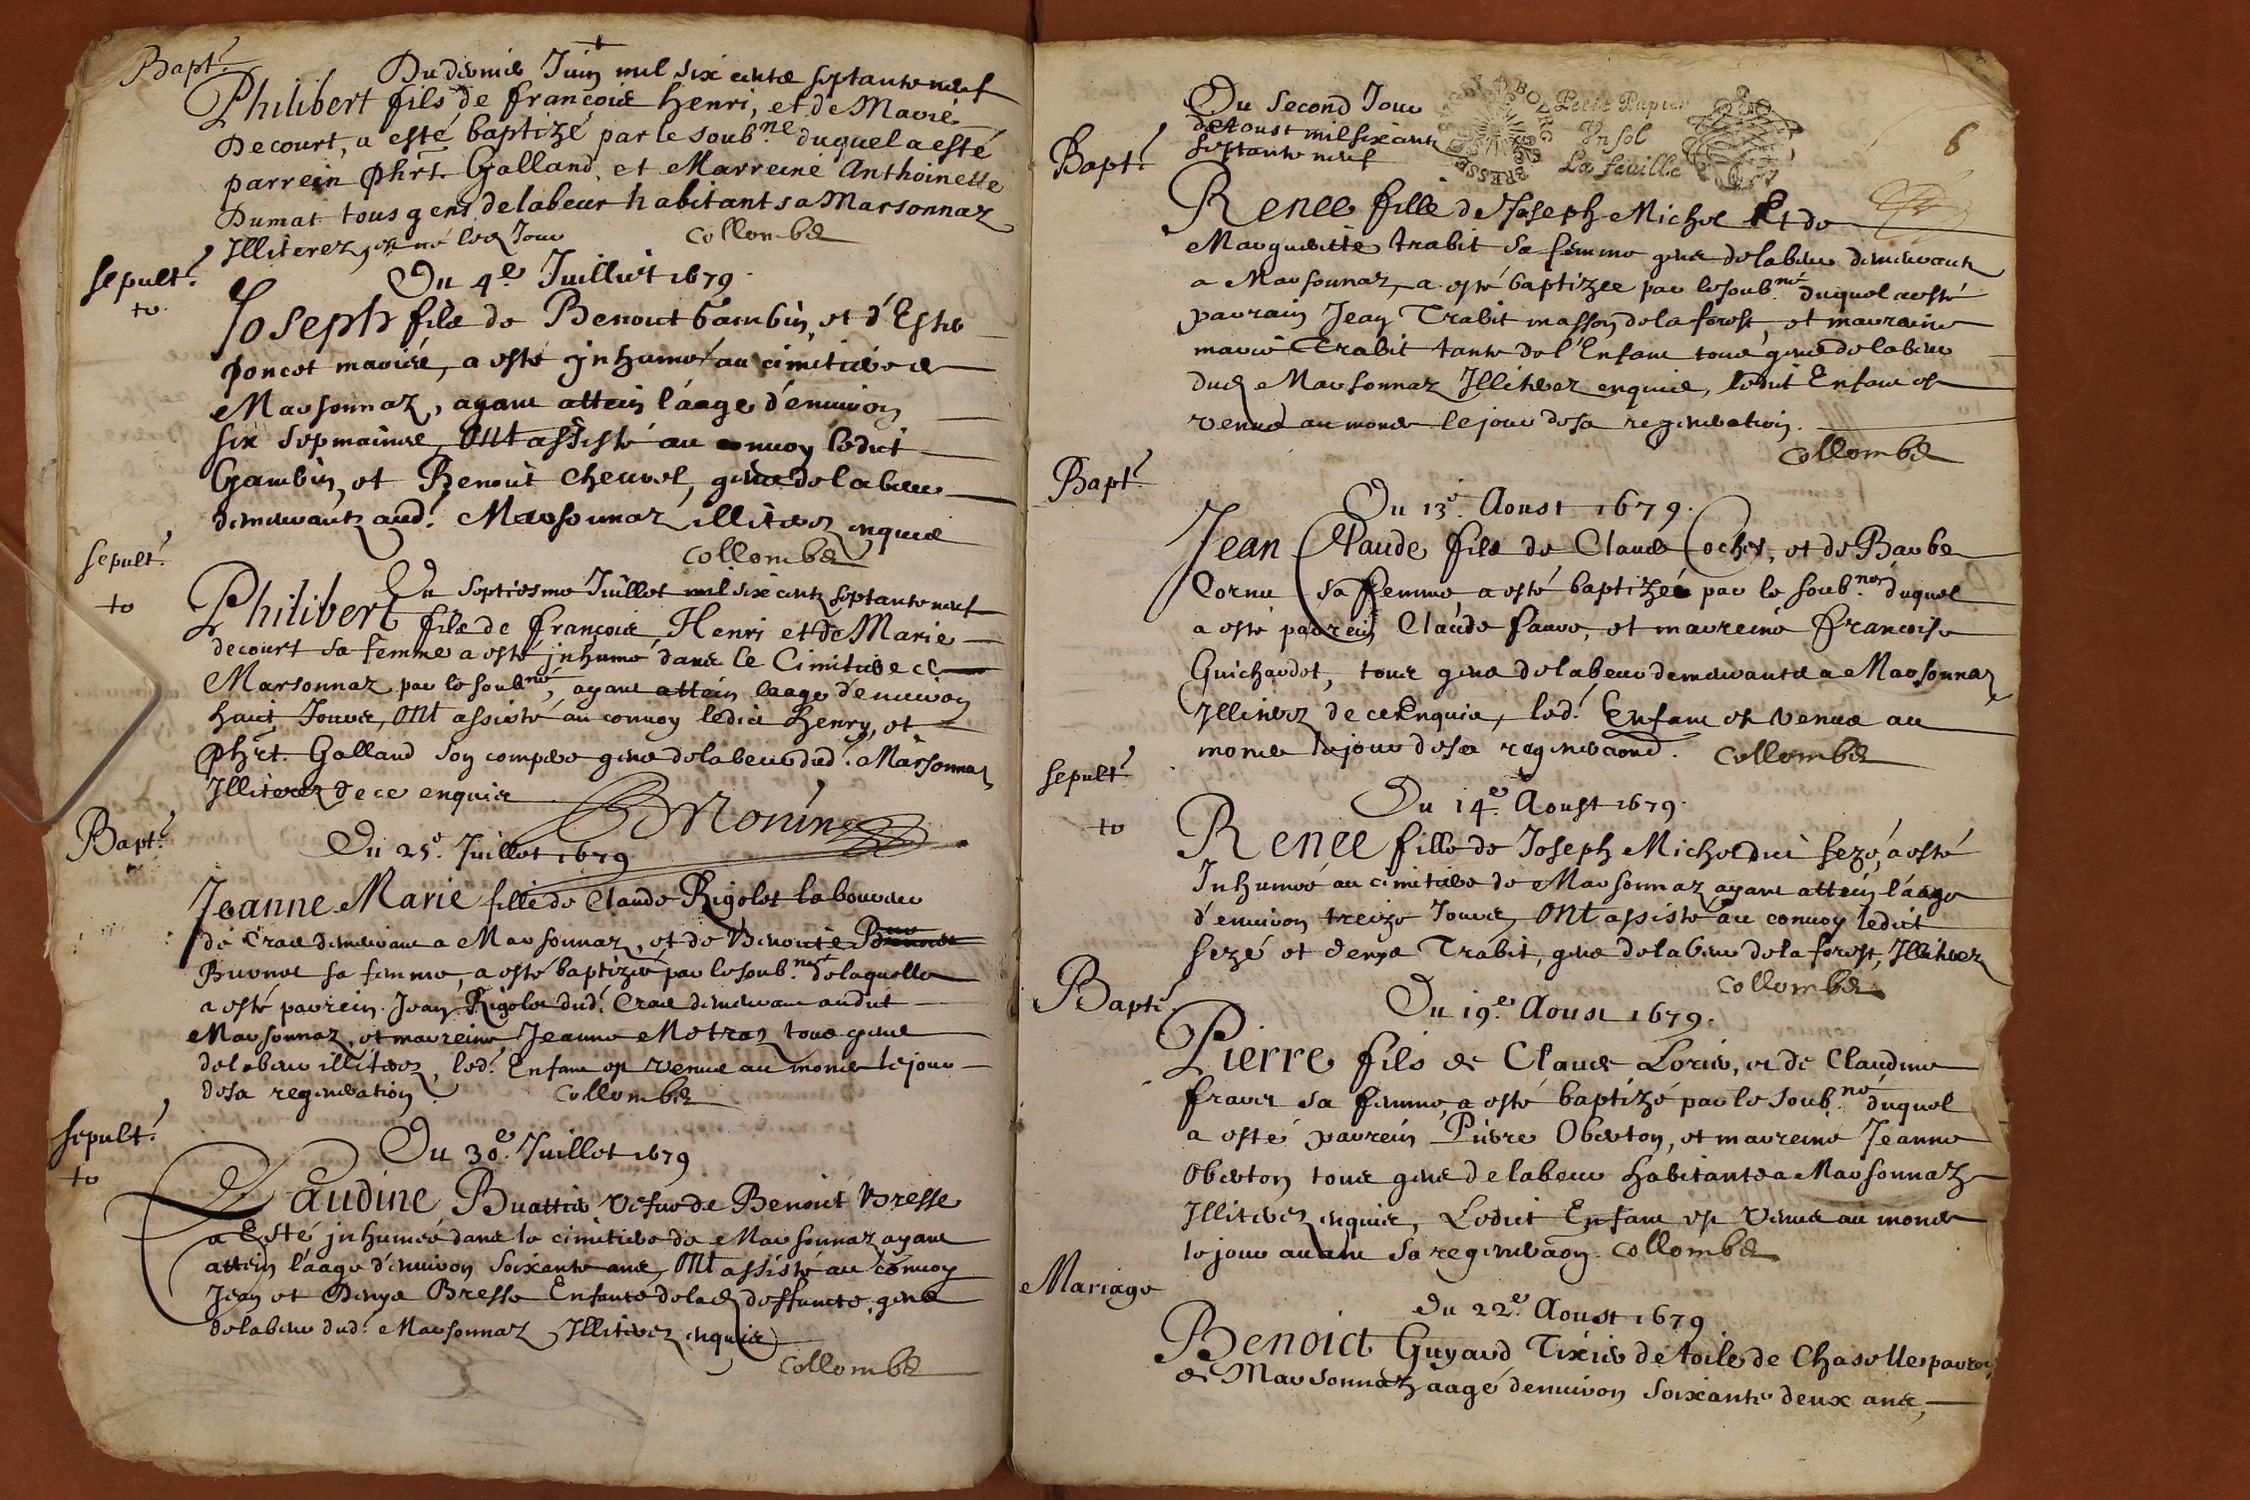 Bapt.
Du dernie Juin mil six centz septante neuf
Philibert fils de françois henri, et de Marie
Decourt, a esté baptizé par le soub.né duquel a esté
parrein phrt. Galland, et Marreine Anthoinette
Dumat tous gens de labeur habitants a Marsonnaz
Illiterez, est né led Jour
Collombe
sepult.
to
Du 4.e Juillet 1679.
Joseph fils de Benoict Gambin, et d'Esther
poncet mariés, a esté jnhumé au cimitiere de
Marsonnaz, ayant attein l'âage d'enuiron
six sepmaines, Ont assisté au conuoy ledict
Gambin, et Benoit cheurel, gens de labeur
demeurants aud. Marsonnaz illiterez enquis
Collombe
sepult.
to
Du septiesme Juillet mil six centz septante neuf
Philibert fils de françois Henri et de Marie
decourt sa femme a esté jnhumé dans le Cimitiere de
Marsonnaz par le soubné, ayant attein laage d'enuiron
huit Jours, Ont assisté au conuoy ledict henry, et
phrt. Galland son compere gens de labeur dud. Marsonnaz
Illiterez de ce enquis
Monin
Bapt.
Du 25.e Juillet 1679
Jeanne Marie fille de Claude Rigolet laboureur
de Cras demeurant a Marsonnaz, et de Benoite
Buenet sa femme, a esté baptizée par le soub.né de laquelle
a esté parrein Jean Rigolet dud. Cras demeurant audict
Marsonnaz, et marreine Jeanne Metraz tous gens
de labeur illiterez, led. Enfant est venue au monde le jour
de sa regeneration.
Collombe
sepult.
to
Du 30.e Juillet 1679
Claudine Buattier vefue de Benoict Bresse
a Esté jnhumée dans le cimitiere de Marsonnaz ayant
attein l'âage d'enuiron soixante ans, Ont assisté au conuoy
Jean et Denys Bresse Enfants de lad deffuncte gens
de labeur dud. Marsonnaz, Illiterez enquis
Collombe
6
BOVRG
BRESSE
Petit Papier
Vn sol
La feuille
Du second Jour
d'Aoust mil six centz
septante neuf
Bapt.
Renee fille de Joseph Michel Et de
Marguerite trabit sa femme gens de labeur demeurants
a Marsonnaz, a esté baptizee par le soub.né duquel a esté
parrain Jean Trabit masson de la forest, et marraine
marie Trabit tante de l'Enfant tous gens de labeur
dud Marsonnaz Illiterez enquis, ledit Enfant est
venue au monde le jour de sa regeneration.
Collombe
Bapt.
Du 13.e Aoust 1679.
Jean Claude fils de Claude Cochet, et de Barbe
Cornu sa femme, a esté baptizé par le soub.né duquel
a esté parrein Claude faure, et marreine francoise
Guichardet, tous gens de labeur demeurants a Marsonnaz
Illiterez de ce Enquis, led. Enfant est venus au
monde le jour de sa regeneraond.
Collombe
sepult.
to
Du 14.e Aoust 1679.
Renee fille de Joseph Michel dict sezé, a esté
Inhumée au cimitiere de Marsonnaz ayant attein l'âage
d'enuiron treize Jours, Ont assisté au conuoy ledict
sezé et denys Trabit, gens de labeur de la forest, Illiterez
Collombe
Bapt.
Du 19.e Aoust 1679.
Pierre fils de Claude Lorin, et de Claudine
frauet sa femme, a esté baptizé par le soub.né duquel
a esté parrein Pierre Oberton, et marreine Jeanne
Oberton tous gens de labeur habitants a Marsonnaz
Illiterez enquis, Ledict Enfant est venus au monde
le jour auant sa regeneraon.
Collombe
Mariage
Du 22.e Aoust 1679
Benoict Guyard Tixier de toile de Chaselles parroi
de Marsonnaz aagé denuiron soixante deux ans,